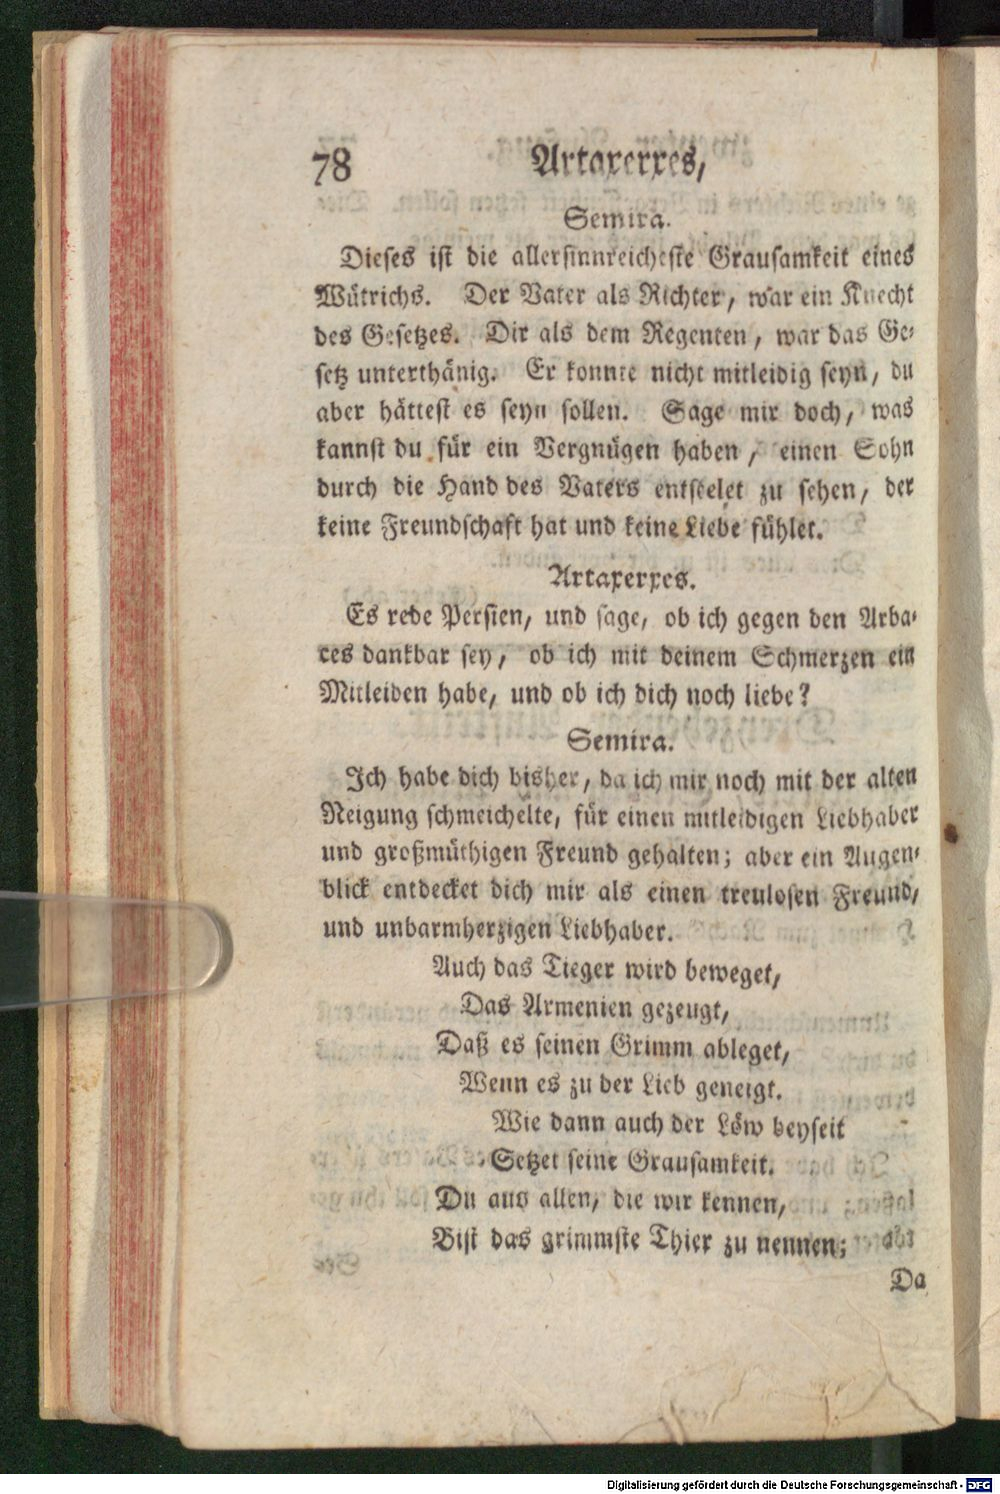 78 Artaxerxes,
Semira.
Dieses ist die allersinnreicheste Grausamkeit eines
Wütrichs. Der Vater als Richter, war ein Knecht
des Gesetzes. Dir als dem Regenten, war das Ge-
setz unterthänig. Er konnte nicht mitleidig seyn, du
aber hättest es seyn sollen. Sage mir doch, was
kannst du für ein Vergnügen haben, einen Sohn
durch die Hand des Vaters entseelet zu sehen, der
keine Freundschaft hat und keine Liebe fühlet.
Artaxerxes.
Es rede Persien, und sage, ob ich gegen den Arba-
ces dankbar sey, ob ich mit deinem Schmerzen ein
Mitleiden habe, und ob ich dich noch liebe?
Semira.
Ich habe dich bisher, da ich mir noch mit der alten
Neigung schmeichelte, für einen mitleidigen Liebhaber
und großmüthigen Freund gehalten; aber ein Augen-
blick entdecket dich mir als einen treulosen Freund,
und unbarmherzigen Liebhaber.
Auch das Tieger wird beweget,
Das Armenien gezeugt,
Daß es seinen Grimm ableget,
Wenn es zu der Lieb geneigt.
Wie dann auch der Löw beyseit
Setzet seine Grausamkeit.
Du aus allen, die wir kennen,
Bist das grimmste Thier zu nennen;
Da
Digitalisierung gefördert durch die Deutsche Forschungsgemeinschaft - DFG